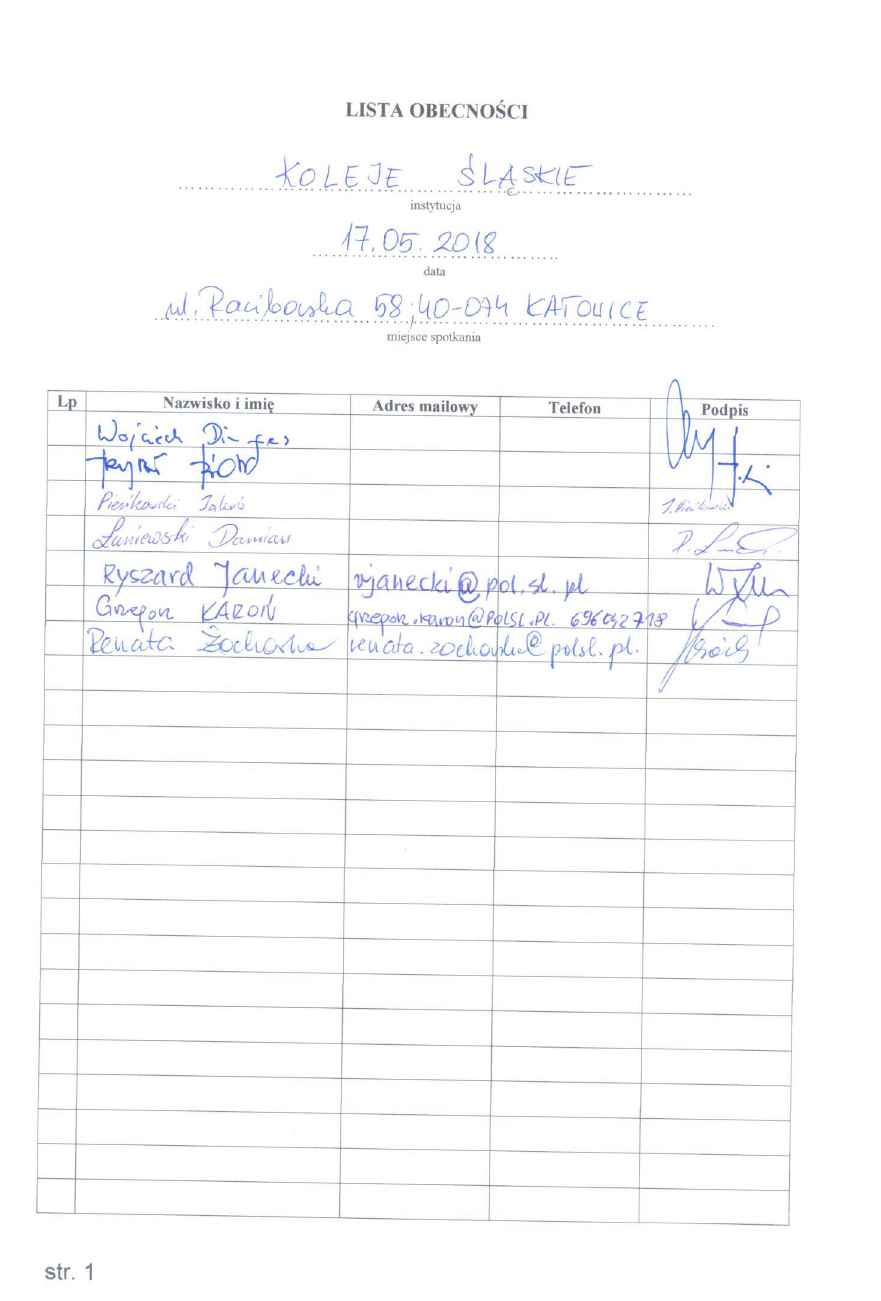 LISTA OBECNOŚCI
KOLEJE ŚLĄSKIE
instytucja
17.05.2018
data
ul. Raciborska 58, 40-074 KATOWICE
miejsce spotkania
Lp Nazwisko i imię Adres mailowy Telefon Podpis
Wojciech
Pieńkowski Jakub J. Pieńkowski
Łaniewski Damian
Ryszard Janecki rjanecki@pol.sl.pl
Grzegorz KAROŃ grzegorz.karon@POLSL.PL. 696042718
Renata Żochowska renata.zochowska@polsl.pl.
str. 1